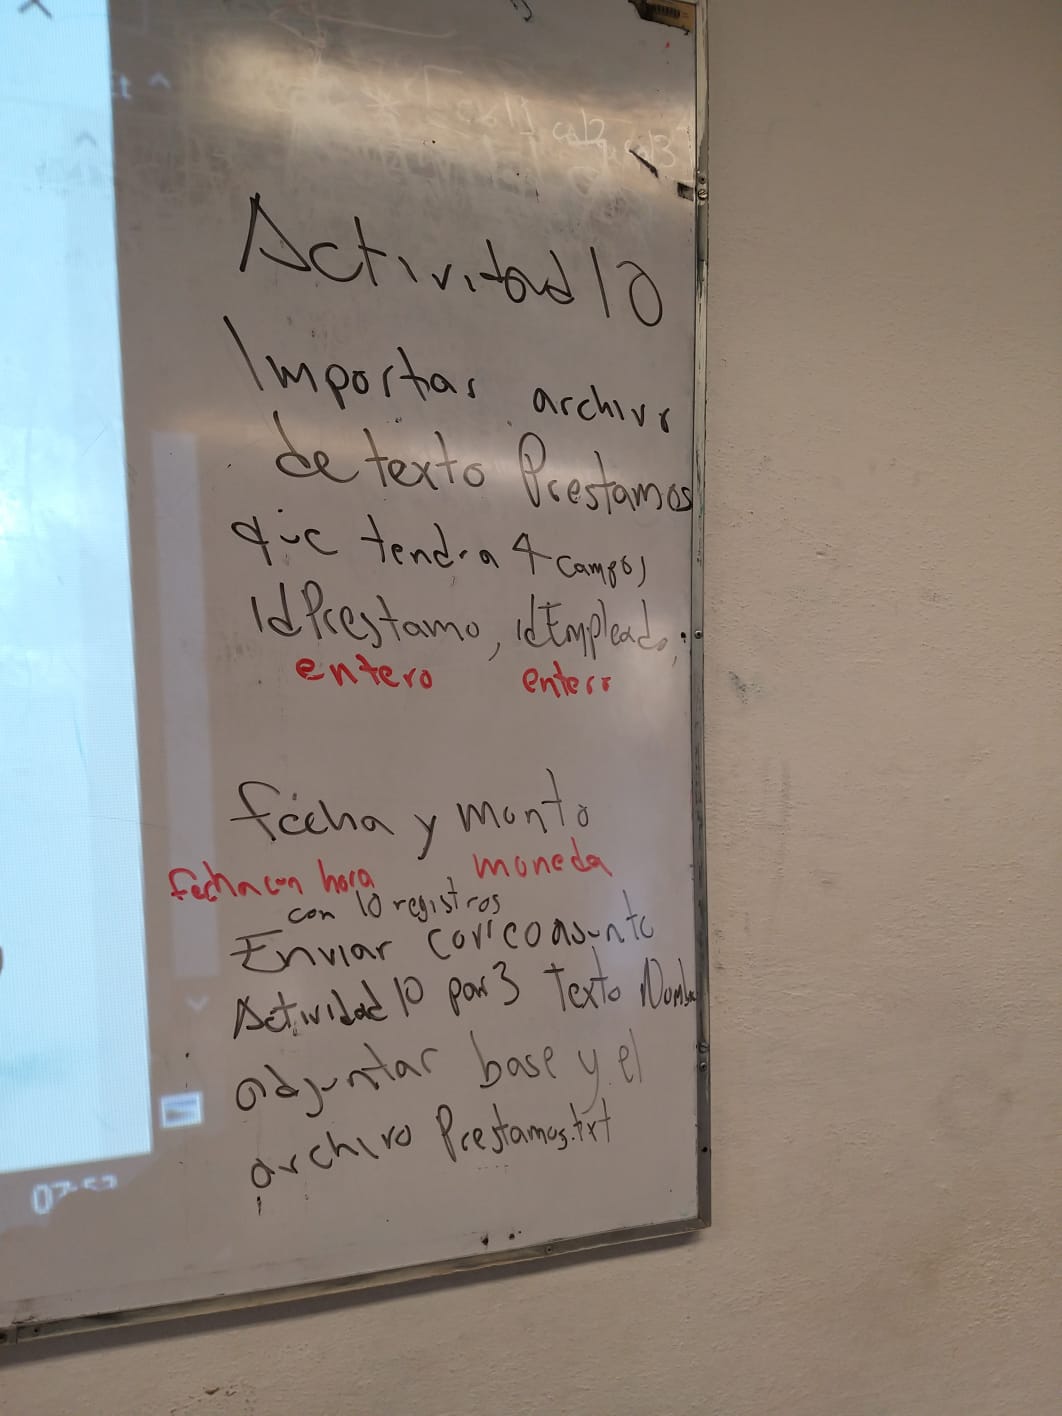 col1 col2, col3
Actividad 10
Importar archivo
de texto Prestamos
que tendra 4 campos
IdPrestamo, idEmpleado,
entero entero
fecha y monto
fecha con hora moneda
con 10 registros
Enviar correo asunto
Actividad 10 par 3 Texto Nombre
adjuntar base y el
archivo Prestamos.txt
07:53